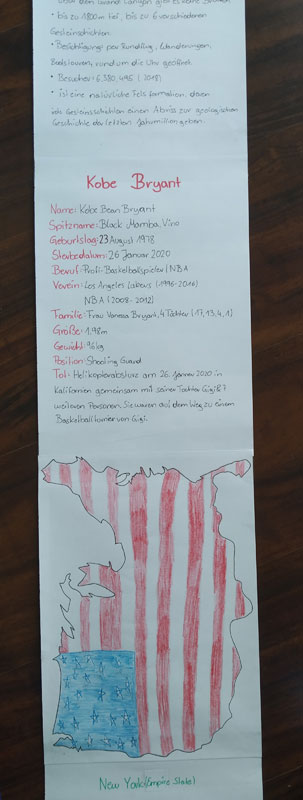 • bis zu 1800m tief, bis zu 6 verschiedenen
Gesteinschichten.
• Besichtigung: per Rundflug, Wanderungen,
Bootstouren, rund um die Uhr geöffnet
• Besucher: 6.380.495 (2018)
• ist eine natürliche Felsformation, deren
Gesteinsschichten einen Abriss zur geologischen
Geschichte der letzten Jahrmillionen geben.
Kobe Bryant
Name: Kobe Bean Bryant
Spitzname: Black Mamba, Vino
Geburtstag: 23 August 1978
Sterbedatum: 26 Januar 2020
Beruf: Profi-Basketballspieler NBA
Verein: Los Angeles Lakers (1996-2016)
NBA (2008-2012)
Familie: Frau Vanessa Bryant, 4 Töchter (17,13,4,1)
Größe: 1.98m
Gewicht: 96kg
Position: Shooting Guard
Tot: Helikopterabsturz am 26. Januar 2020 in
Kalifornien gemeinsam mit seiner Tochter Gigi & 7
weiteren Personen. Sie waren auf dem Weg zu einem
Basketballturnier von Gigi.
New York (Empire State)